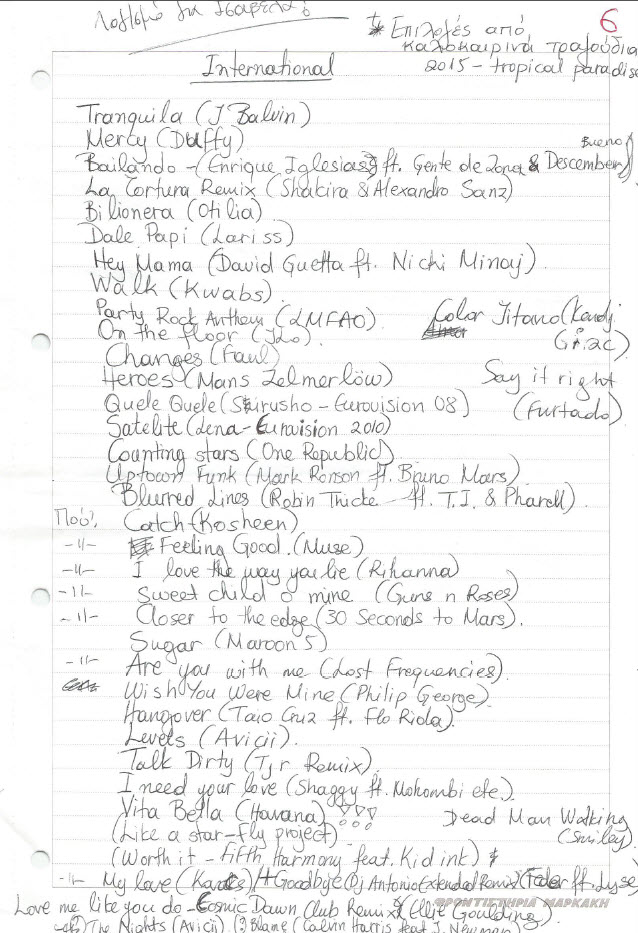 Λογισμό για Ισαβέλα!
* Επιλογές από
καλοκαιρινά τραγούδια
2015 - tropical paradise
6
International
Tranquila (J Balvin)
Mercy (Duffy)
Bailando - (Enrique Iglesias ft. Gente de Zona & Descember Bueno)
La Tortura Remix (Shakira & Alexandro Sanz)
Bilionera (Otilia)
Dale Papi (Lariss)
Hey Mama (David Guetta ft. Nicki Minaj)
Walk (Kwabs)
Party Rock Anthem (LMFAO)
On the floor (JLo)
Color Titano (Kandj
Grac)
Changes (Faul)
Heroes (Mans Zelmerlöw)
Say it right
(Furtado)
Quele Quele (Sirusho - Eurovision 08)
Satelite (Lena - Eurovision 2010)
Counting stars (One Republic)
Uptown Funk (Mark Ronson ft. Bruno Mars)
Blurred Lines (Robin Thicke - ft. T.I. & Pharell)
Πού; Catch (Kosheen)
-//- Feeling Good. (Muse)
-//- I love the way you lie (Rihanna)
-//- Sweet child o mine (Guns n Roses)
-//- Closer to the edge (30 Seconds to Mars).
Sugar (Maroon 5)
-//- Are you with me (Lost Frequencies).
Wish You Were Mine (Philip George).
Hangover (Taio Cruz ft. Flo Rida)
Levels (Avicii).
Talk Dirty (Tjr Remix).
I need your love (Shaggy ft. Mohombi etc.)
Vita Bella (Havana) !!!
Dead Man Walking
(Smiley)
(Like a star - fly project)
(Worth it - Fifth Harmony feat. Kid ink)
-//- My love (Kats) + Goodbye (Dj Antonio Extended Remix) (Feder ft. Lyse)
ΦΡΟΝΤΙΣΤΗΡΙΑ ΜΑΡΚΑΚΗ
Love me like you do - Cosmic Dawn Club Remix (Ellie Goulding)
The Nights (Avicii) Blame (Calvin Harris feat. J. Newman